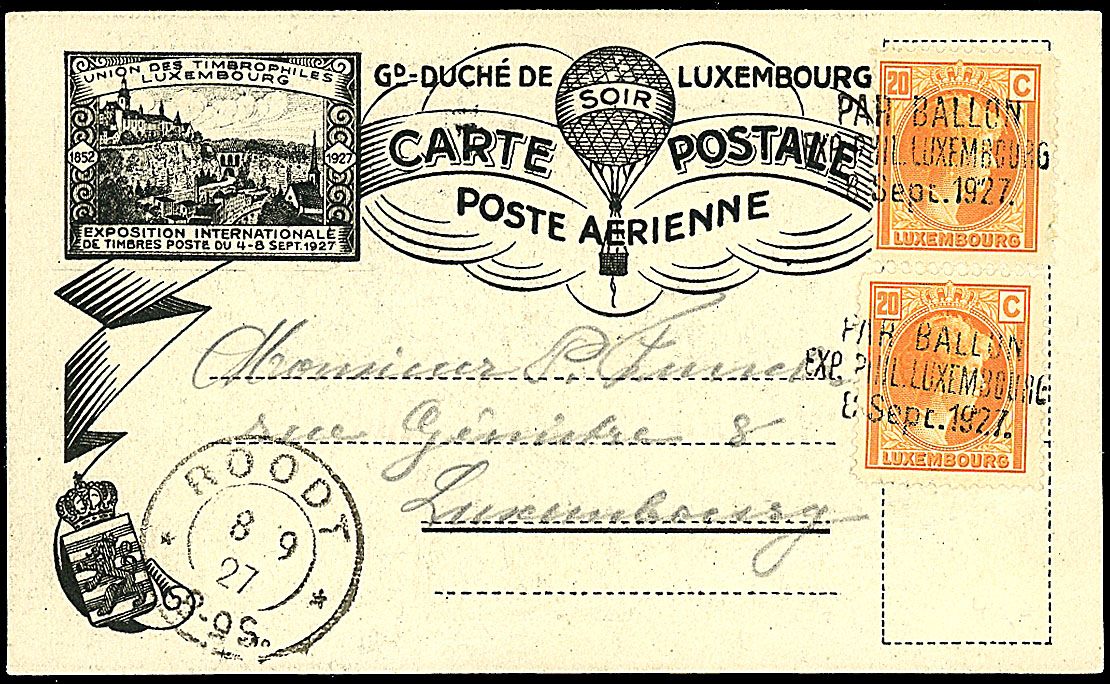 UNION DES TIMBROPHILES
LUXEMBOURG
1852 1927
EXPOSITION INTERNATIONALE
DE TIMBRES POSTE DU 4-8 SEPT. 1927
GD-DUCHÉ DE LUXEMBOURG
SOIR
CARTE POSTALE
POSTE AÉRIENNE
20 C
PAR BALLON
EXP. PHIL. LUXEMBOURG
8 Sept. 1927.
LUXEMBOURG
20 C
PAR BALLON
EXP. PHIL. LUXEMBOURG
8 Sept. 1927.
LUXEMBOURG
Monsieur P. Funck
rue Génistre 8
Luxembourg
ROODT
8 9
27